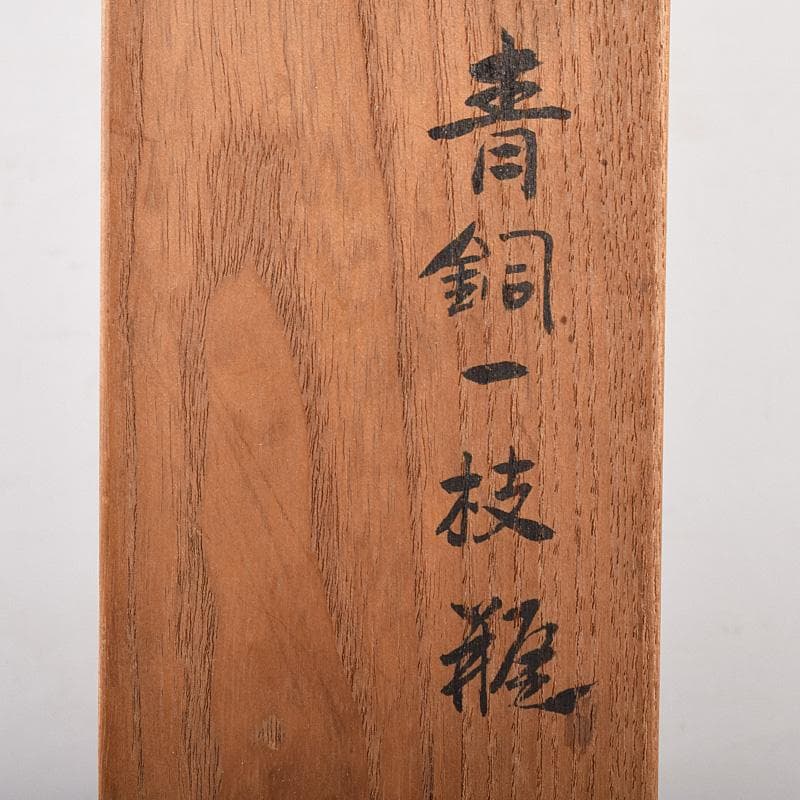 青銅一枝瓶